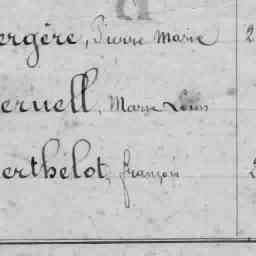 ergère, Pierre Marie 2
ernell, Marie Louis
erthélot, françois 2